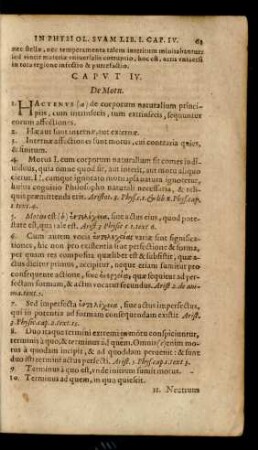 IN PHYSIOL. SVAM LIB. I. CAP. IV. 63
nec stella, nec temperamenta talem interitum
sed vincit materia vniuersalis corruptio, hoc est, aëris
in tota regione infectio & putrefactio.
CAPVT IV.
De Motu.
1. HACTENVS (a) de corporum naturalium princi-
piis, cum internis, tum externis, sequuntur
eorum affectiones.
2. Hæ sunt internæ, aut externæ.
3. Internæ affectiones sunt motus, cui contraria quies,
& finitum.
4. Motus I. cum corporum naturalium sit comes indi-
diduus, quia omne quod fit, aut interit, aut motu aliquo
cietur. II. cumque ignorato motu natura ignoretur,
huius cognitio Philosopho naturali necessaria, & reli-
qui permittenda Aristot. 3. Phys. c.1. & lib. 8. Phys. cap.
1. text.
5. Motus est (b) ἐντελέχεια, siue actus eius, quod pote-
state est, qua tale est. Arist. 3 Physic c 1. text 6.
6. Cum autem vocis ἐντελέχειας variæ sint significa-
tiones, hic non pro existentis siue perfectione & forma,
per quam res composita qualibet est & subsistit, siue ut
actus dicitur primus, accipitor, neque etiam sumitur pro
consequente actione, siue ἐνεργείᾳ, quæ sequitur ad per-
fectum formam, & actus vocatur secundus. Arist 2. de ani-
ma text.
7. Sed imperfecta ἐντελέχεια, siue actus imperfectus,
qui in potentia ad formam consequendam existit Arist.
3. Physic cap. 1. text.
8. Duo itaque termini extremi in motu conspiciuntur,
terminus à quo, & terminus ad quem. Omnis enim mo-
tus à quodam incipit, & ad quoddam peruenit: & sunt
duo isti termini actus perfecti. Arist. 3 Phys. cap 1. text 3.
9. Terminus à quo est, vnde initium sumit motus.
10. Terminus ad quem, in quo quiescit.
11. Neutrum